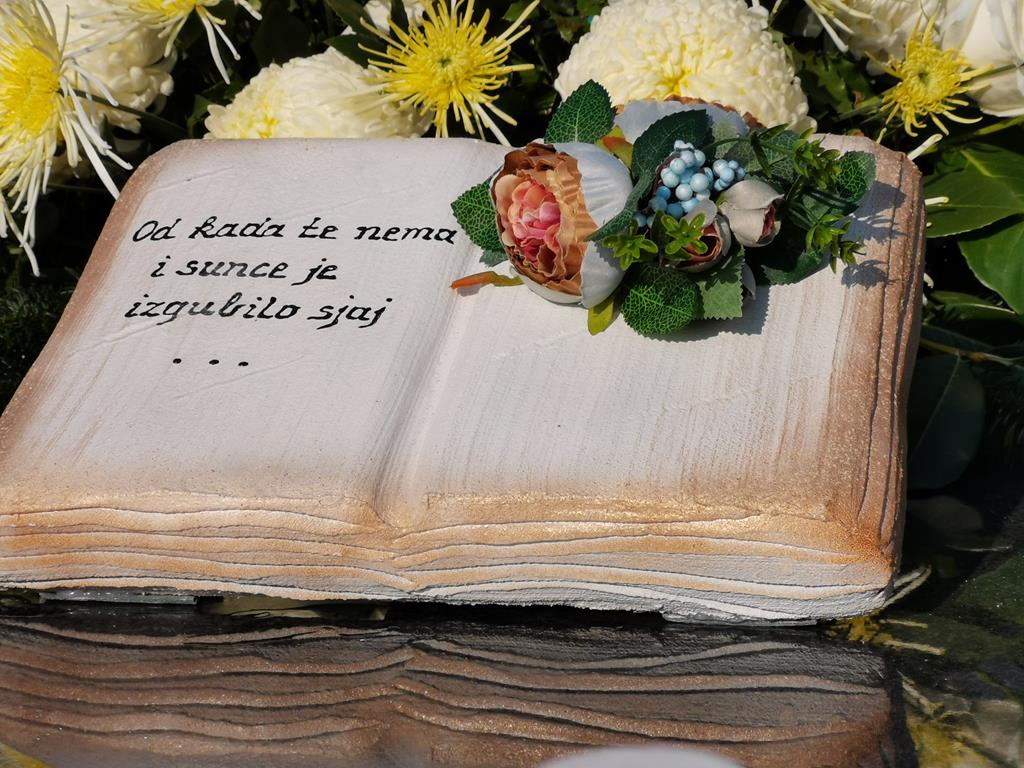 Od kada te nema
i sunce je
izgubilo sjaj
...